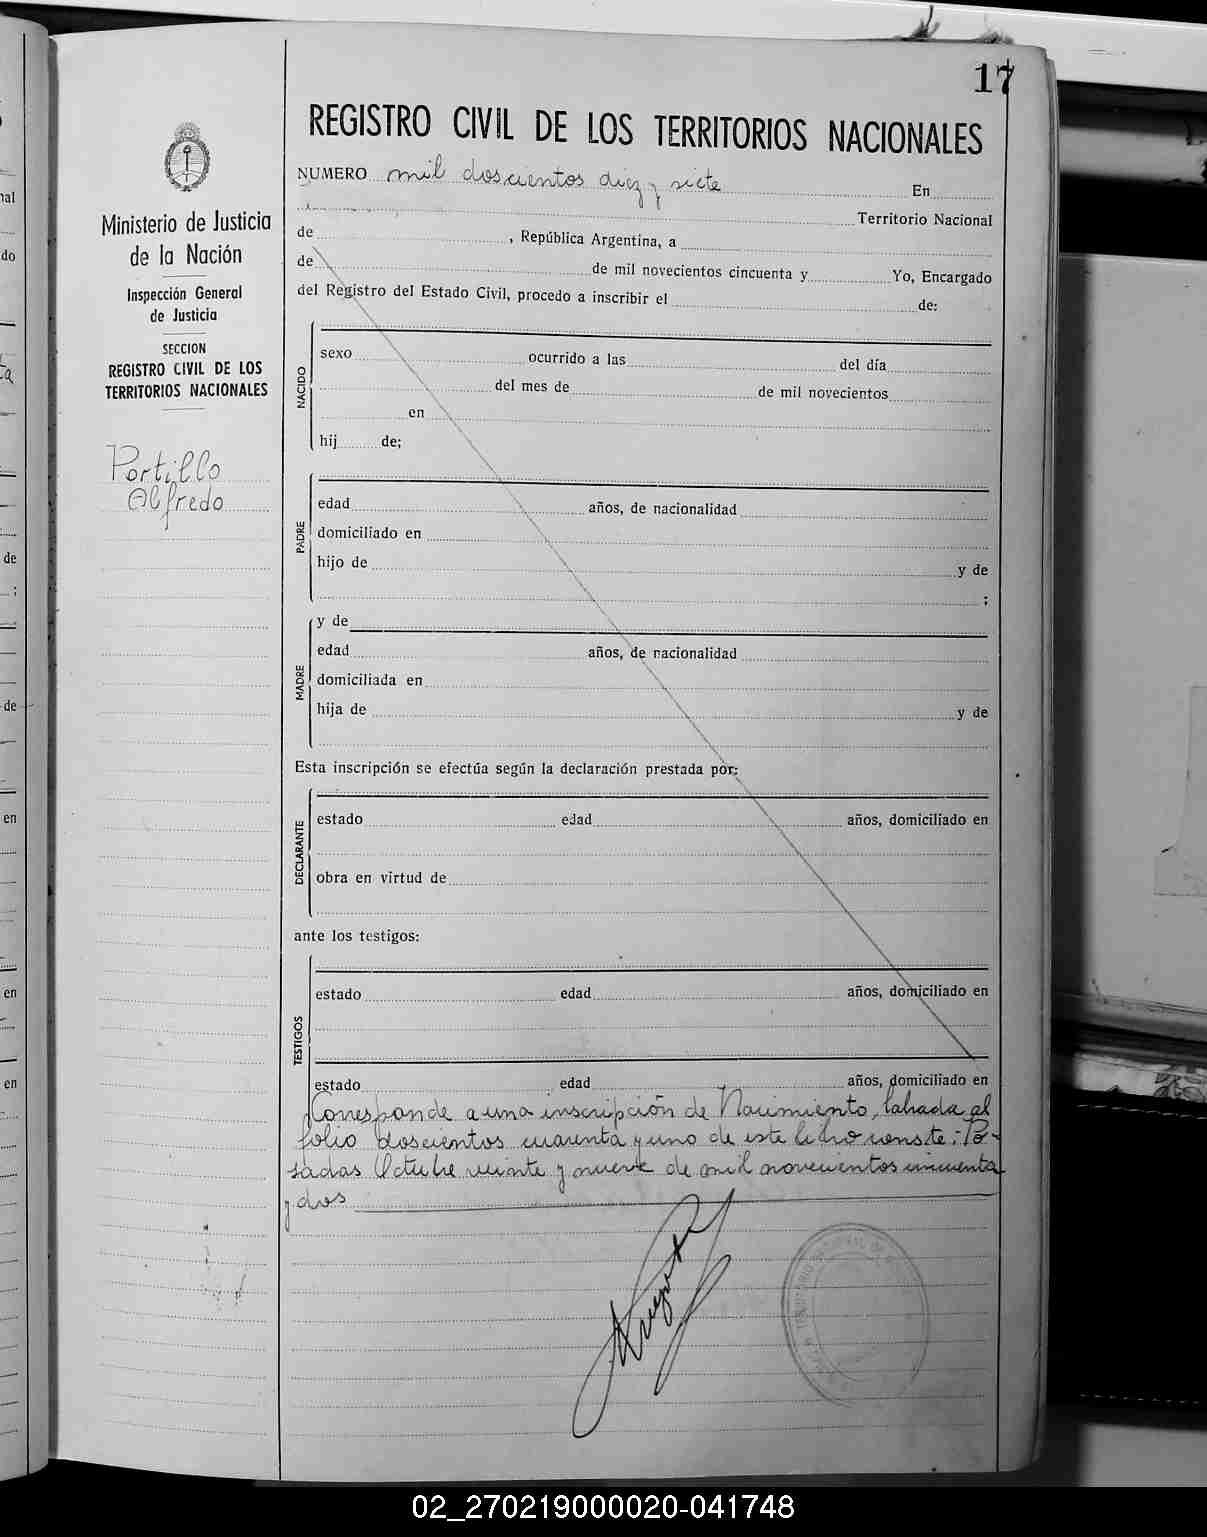 17
REGISTRO CIVIL DE LOS TERRITORIOS NACIONALES
NUMERO mil doscientos diez y siete En
Territorio Nacional
de , República Argentina, a
de de mil novecientos cincuenta y Yo, Encargado
del Registro del Estado Civil, procedo a inscribir el de:
Ministerio de Justicia
de la Nación
Inspección General
de Justicia
SECCION
REGISTRO CIVIL DE LOS
TERRITORIOS NACIONALES
Portillo
Alfredo
NACIDO
sexo ocurrido a las del día
del mes de de mil novecientos
en
hij de;
PADRE
edad años, de nacionalidad
domiciliado en
hijo de y de
;
MADRE
y de
edad años, de nacionalidad
domiciliada en
hija de y de
Esta inscripción se efectúa según la declaración prestada por:
DECLARANTE
estado edad años, domiciliado en
obra en virtud de
ante los testigos:
TESTIGOS
estado edad años, domiciliado en
estado edad años, domiciliado en
Corresponde a una inscripción de Nacimiento, labrada al
folio doscientos cuarenta y uno de este libro conste.- Po-
sadas Octubre veinte y nueve de mil novecientos cincuenta
y dos
02_270219000020-041748